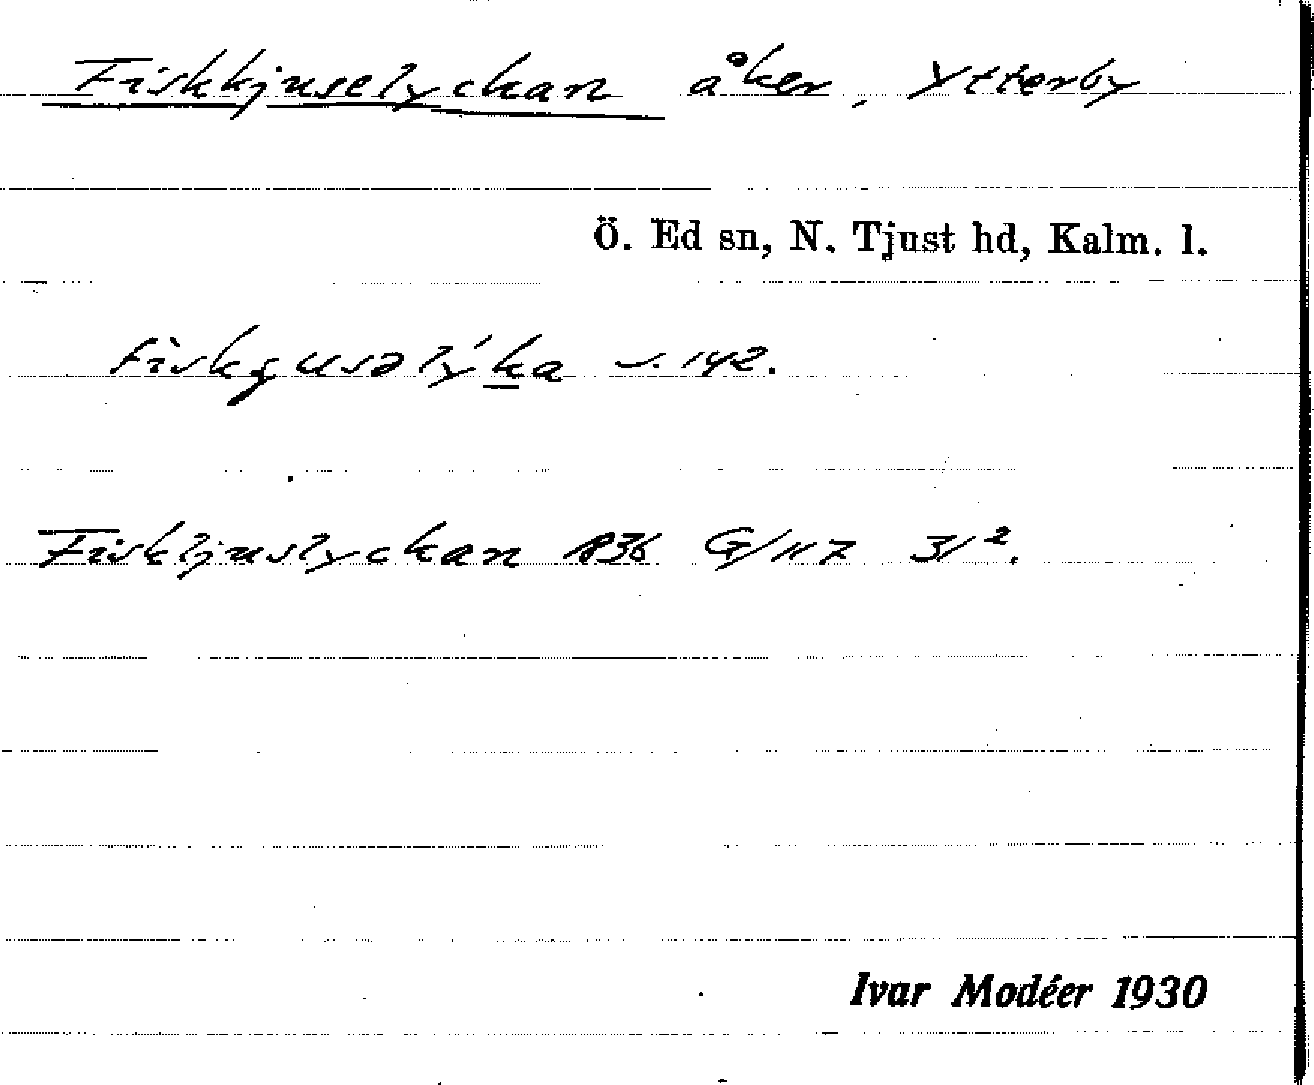 Fiskkjuselyckan åker, Ytterby
Ö. Ed sn, N. Tjust hd, Kalm. l.
fiskçusəlýka s. 142.
Fiskljuslyckan 1836 G/117 31².
Ivar Modéer 1930